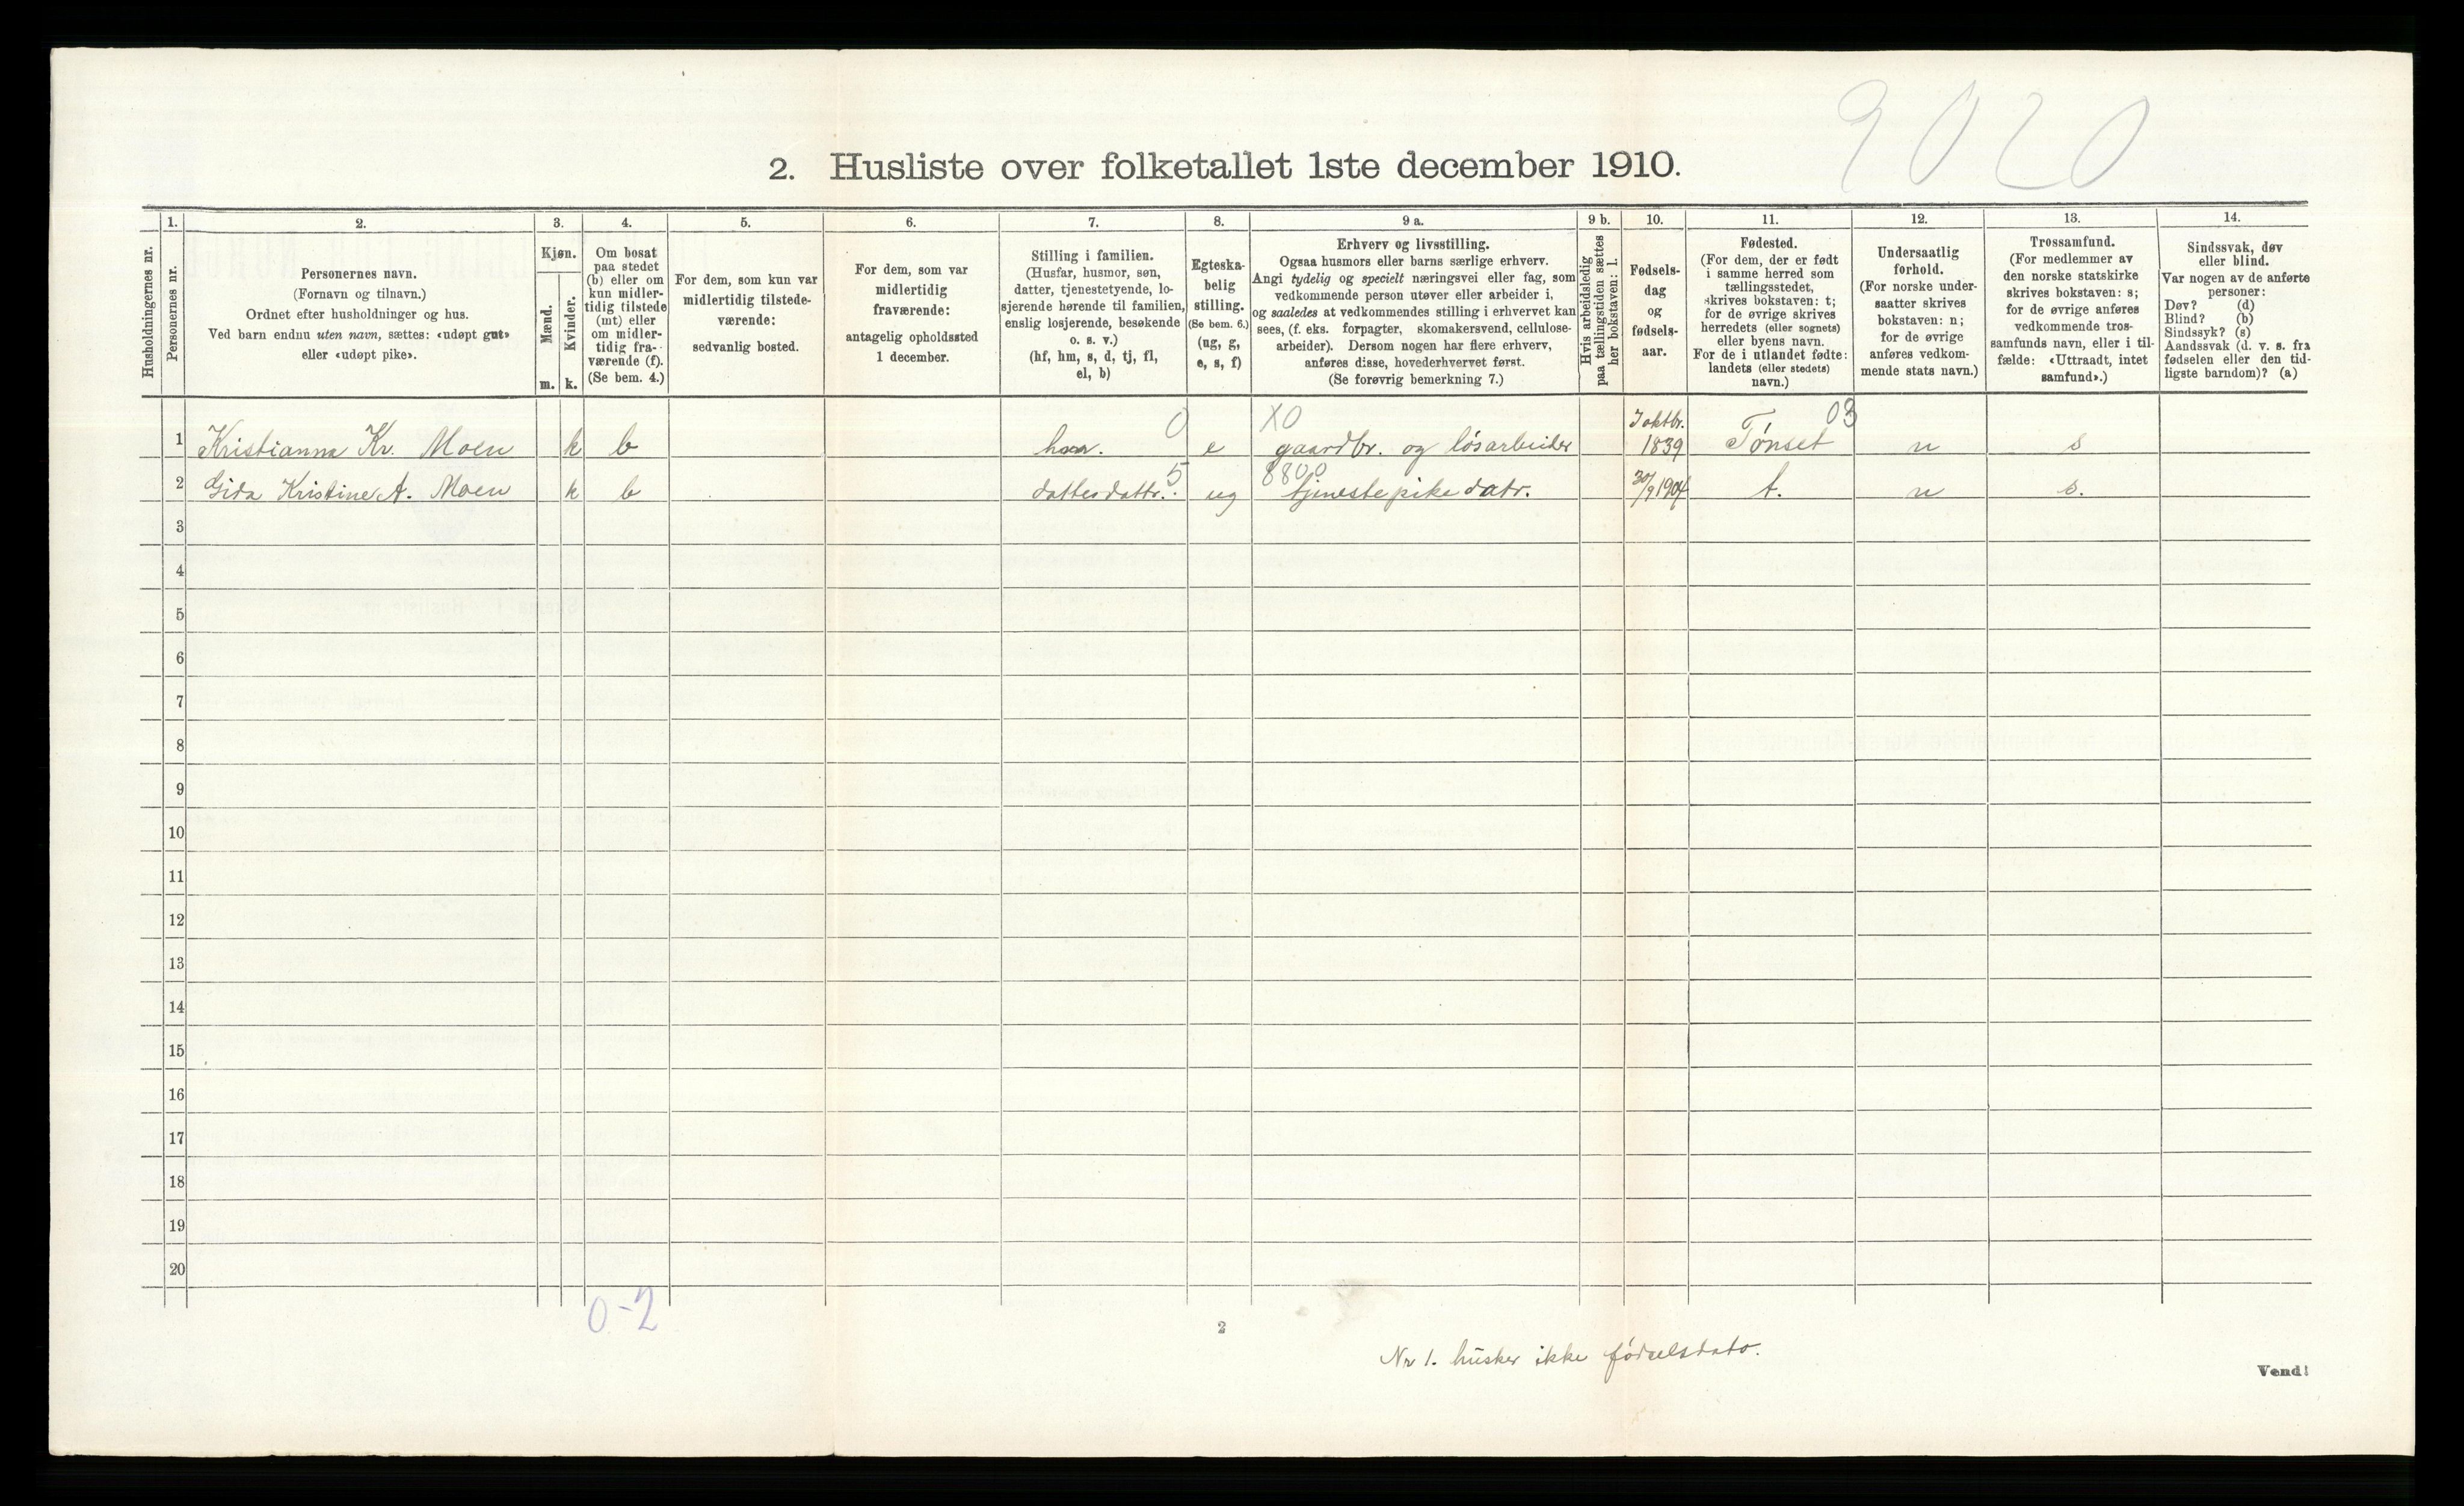 9020
2. Husliste over folketallet 1ste december 1910.
Husholdningernes nr.
1.
Personernes nr.
2.
Personernes navn.
(Fornavn og tilnavn.)
Ordnet efter husholdninger og hus.
Ved barn endnu uten navn, sættes: «udøpt gut»
eller «udøpt pike».
3.
Kjøn.
Mænd.
Kvinder.
m. k.
4.
Om bosat
paa stedet
(b) eller om
kun midler-
tidig tilstede
(mt) eller
om midler-
tidig fra-
værende (f).
(Se bem. 4.)
5.
For dem, som kun var
midlertidig tilstede-
værende:
sedvanlig bosted.
6.
For dem, som var
midlertidig
fraværende:
antagelig opholdssted
1 december.
7.
Stilling i familien.
(Husfar, husmor, søn,
datter, tjenestetyende, lo-
sjerende hørende til familien,
enslig losjerende, besøkende
o. s. v.)
(hf, hm, s, d, tj, fl,
el, b)
8.
Egteska-
belig
stilling.
(Se bem. 6.)
(ug, g,
e, s, f)
9 a.
Erhverv og livsstilling.
Ogsaa husmors eller barns særlige erhverv.
Angi tydelig og specielt næringsvei eller fag, som
vedkommende person utøver eller arbeider i,
og saaledes at vedkommendes stilling i erhvervet kan
sees, (f. eks. forpagter, skomakersvend, cellulose-
arbeider). Dersom nogen har flere erhverv,
anføres disse, hovederhvervet først.
(Se forøvrig bemerkning 7.)
9 b.
Hvis arbeidsledig
paa tællingstiden sættes
her bokstaven: l.
10.
Fødsels-
dag
og
fødsels-
aar.
11.
Fødested.
(For dem, der er født
i samme herred som
tællingsstedet,
skrives bokstaven: t;
for de øvrige skrives
herredets (eller sognets)
eller byens navn.
For de i utlandet fødte:
landets (eller stedets)
navn.)
12.
Undersaatlig
forhold.
(For norske under-
saatter skrives
bokstaven: n;
for de øvrige
anføres vedkom-
mende stats navn.)
13.
Trossamfund.
(For medlemmer av
den norske statskirke
skrives bokstaven: s;
for de øvrige anføres
vedkommende tros-
samfunds navn, eller i til-
fælde: «Uttraadt, intet
samfund».)
14.
Sindssvak, døv
eller blind.
Var nogen av de anførte
personer:
Døv? (d)
Blind? (b)
Sindssyk? (s)
Aandssvak (d. v. s. fra
fødselen eller den tid-
ligste barndom)? (a)
0 X0 03
1 Kristianna Kr. Moen k b hm. e gaardbr. og løsarbeider 1 oktbr. 1839 Tønset n s
5 8800
2 Gida Kristine A. Moen k b datterdattr. ug tjenestepike datr. 30/9 1904 t. n s.
3
4
5
6
7
8
9
10
11
12
13
14
15
16
17
18
19
20
0-2
2
Nr 1. husker ikke fødselsdato.
Vend!